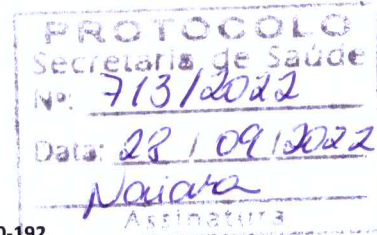 PROTOCOLO
Secretaria de Saúde
Nº: 713/2022
Data: 28 / 09 / 2022
Naiara
Assinatura
0-192